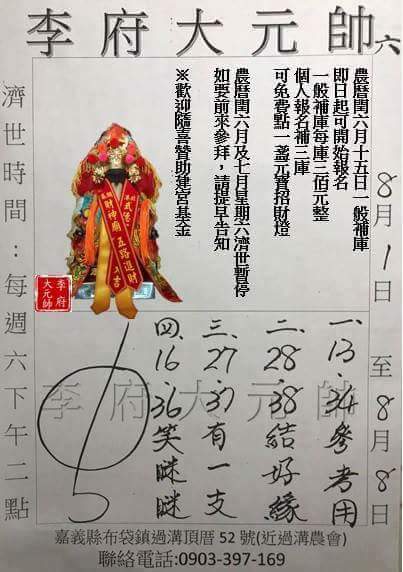 李府大元帥六
農曆閏六月十五日一般補庫
即日起可開始報名
一般補庫每庫三佰元整
個人報名補三庫
可免費點一盞元寶招財燈
農曆閏六月及七月星期六濟世暫停
如要前來參拜,請提早告知
※歡迎隨喜贊助建宮基金
濟世時間:每週六下午二點
8月1日至8月8日
財神廟
五路進財
李府大元帥
李府大元帥
一、13.34參考用
二、28.38結好緣
三、27.37有一支
四、16.36笑眯眯
5
嘉義縣布袋鎮過溝頂厝52號(近過溝農會)
聯絡電話:0903-397-169